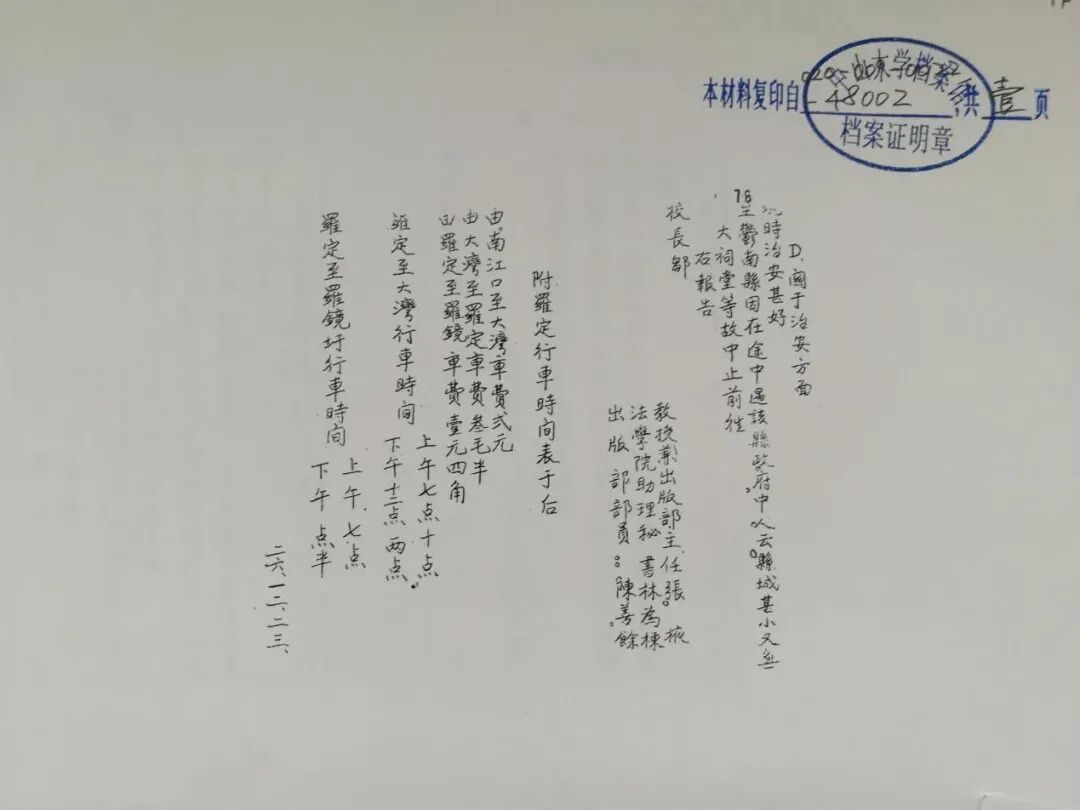 本材料复印自020-001-
-48002 共壹页
中山大学档案馆
档案证明章
78
D.関于治安方面
現時治安甚好
至鬱南縣因在途中遇該縣政府中人云縣城甚小又無
大祠堂等故中止前往
右報告
校長鄒
教授兼出版部主任張掖
法學院助理秘書林為棟
出版部部員：陳善餘
附羅定行車時间表于后
由南江口至大灣車費弍元
由大灣至羅定車費叁毛半
由羅定至羅鏡車費壹元四角
羅定至大灣行車時间
上午七点十点
下午十二点两点
羅定至羅鏡圩行車時间
上午七点
下午点半
二六、一二、二三、